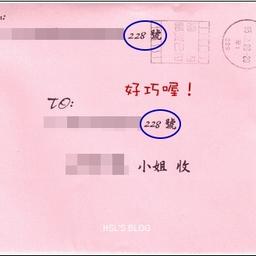 228 號
好巧喔！
TO:
228 號
小姐 收
HSL'S BLOG